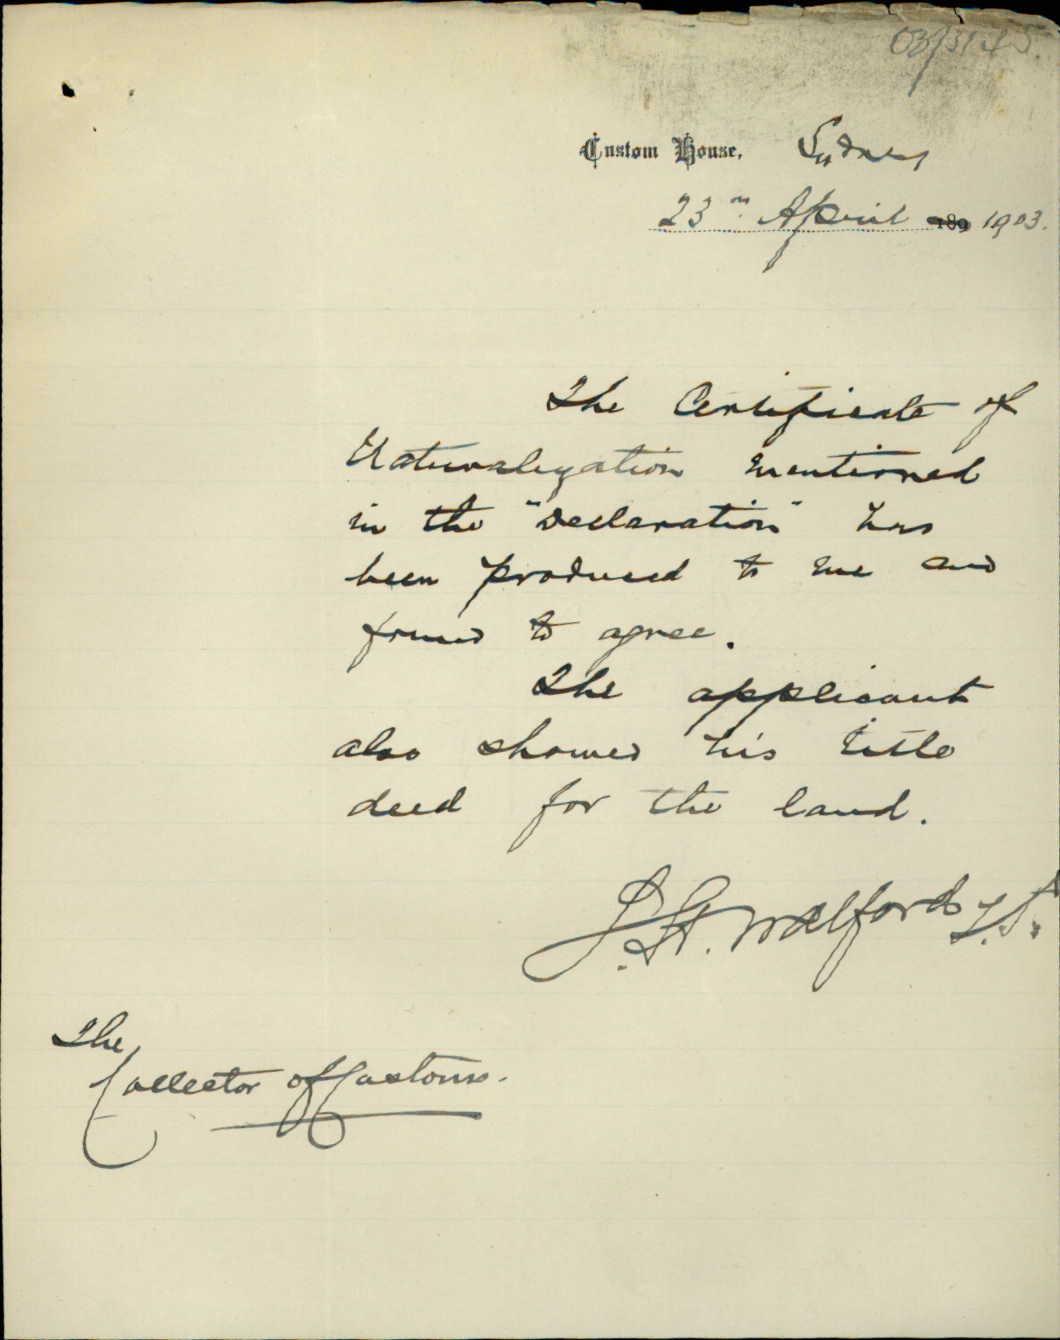 03/3145.
Custom House, Sydney
23rd April 189 1903.
The Certificate of
Naturalization mentioned
in the "Declaration" has
been produced to me and
found to agree.
The applicant
also showed his title
deed for the land.
J. H. Walford J.P.
The
Collector of Customs.